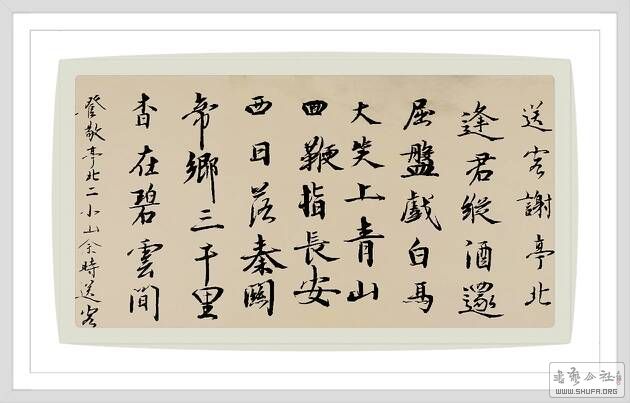 送客謝亭北
逢君縱酒還
屈盤戲白馬
大笑上青山
回鞭指長安
西日落秦關
帝鄉三千里
杳在碧雲間
登敬亭北二小山余時送客
公社
WWW.SHUFA.ORG